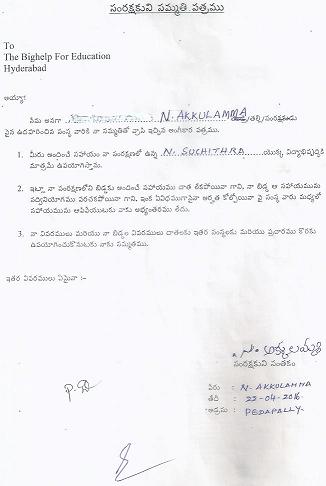 సంరక్షకుని సమ్మతి పత్రము
To
The Bighelp For Education
Hyderabad
అయ్యా!
నేను అనగా N. AKKULAMMA తండ్రి/తల్లి/సంరక్షకుడు
పైన ఉదహరించిన సంస్థ వారికి నా సమ్మతితో వ్రాసి ఇచ్చిన అంగీకార పత్రము.
1. మీరు అందించే సహాయం నా సంరక్షణలో ఉన్న N. SUCHITHRA యొక్క విద్యాభివృద్ధికి
మాత్రమే ఉపయోగిస్తాను.
2. ఇట్లా నా సంరక్షణలోని బిడ్డకు అందించే సహాయము చాలక లేకపోయినా గాని, నా బిడ్డ ఆ సహాయమును
సద్వినియోగము పరచకపోయినా గాని, ఇంక ఏవిధముగానైనా అర్హత కోల్పోయినా పై సంస్థ వారు మధ్యలో
సహాయమును ఆపివేయుటకు నాకు అభ్యంతరము లేదు.
3. నా వివరములు మరియు నా బిడ్డల వివరములు దాతలకు ఇతర సంస్థలకు మరియు ప్రచారము కొరకు
ఉపయోగించుకొనుటకు నాకు సమ్మతము.
ఇతర వివరములు ఏమైనా :-
న. అక్కులమ్మ
సంరక్షకుని సంతకం
పేరు : N. AKKULAMMA
తేది : 22-04-2016
అడ్రసు : PEDAPALLY.